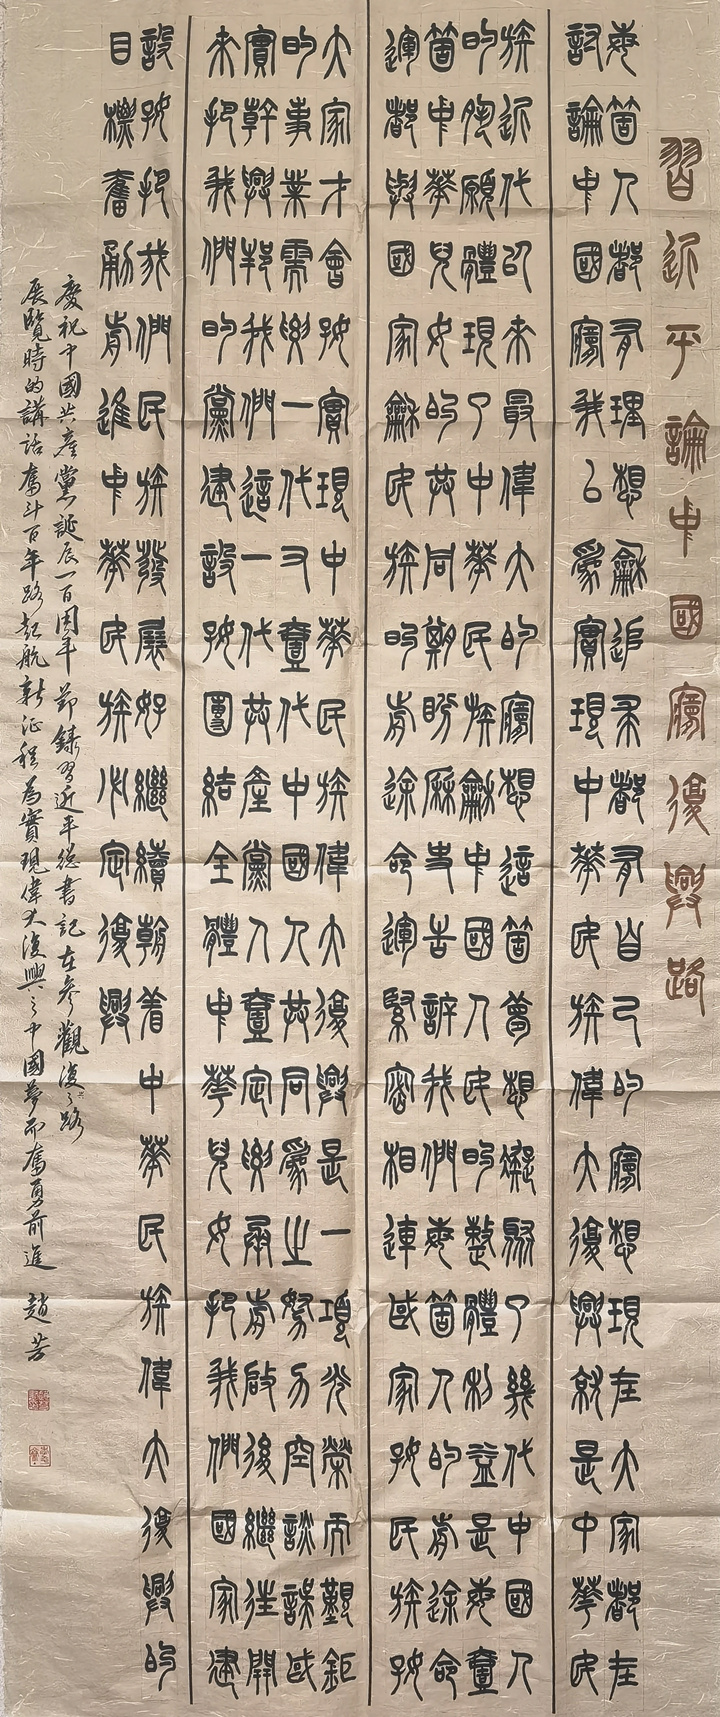 習近平論中國夢復興路
每箇人都有理想龢追求都有自己的夢想現在大家都在
討論中國夢我以為實現中華民族偉大復興就是中華民
族近代以來最偉大的夢想這箇夢想凝聚了幾代中國人
的夙願體現了中華民族龢中國人民的整體利益是每壹
箇中華兒女的共同期盼歷史告訴我們每箇人的前途命
運都與國家龢民族的前途命運緊密相連國家好民族好
大家才會好實現中華民族偉大復興是一項光榮而艱鉅
的事業需要一代又壹代中國人共同為之努力空談誤國
實幹興邦我們這一代共產黨人壹定要承前啟後繼往開
來把我們的黨建設好團結全體中華兒女把我們國家建
設好把我們民族發展好繼續朝着中華民族偉大復興的
目標奮勇前進中華民族必定復興
慶祝中國共產黨誕辰一百周年 節錄習近平總書記在參觀復興之路
展覽時的講話 奮斗百年路起航新征程為實現偉大復興之中國夢而奮勇前進 趙芳